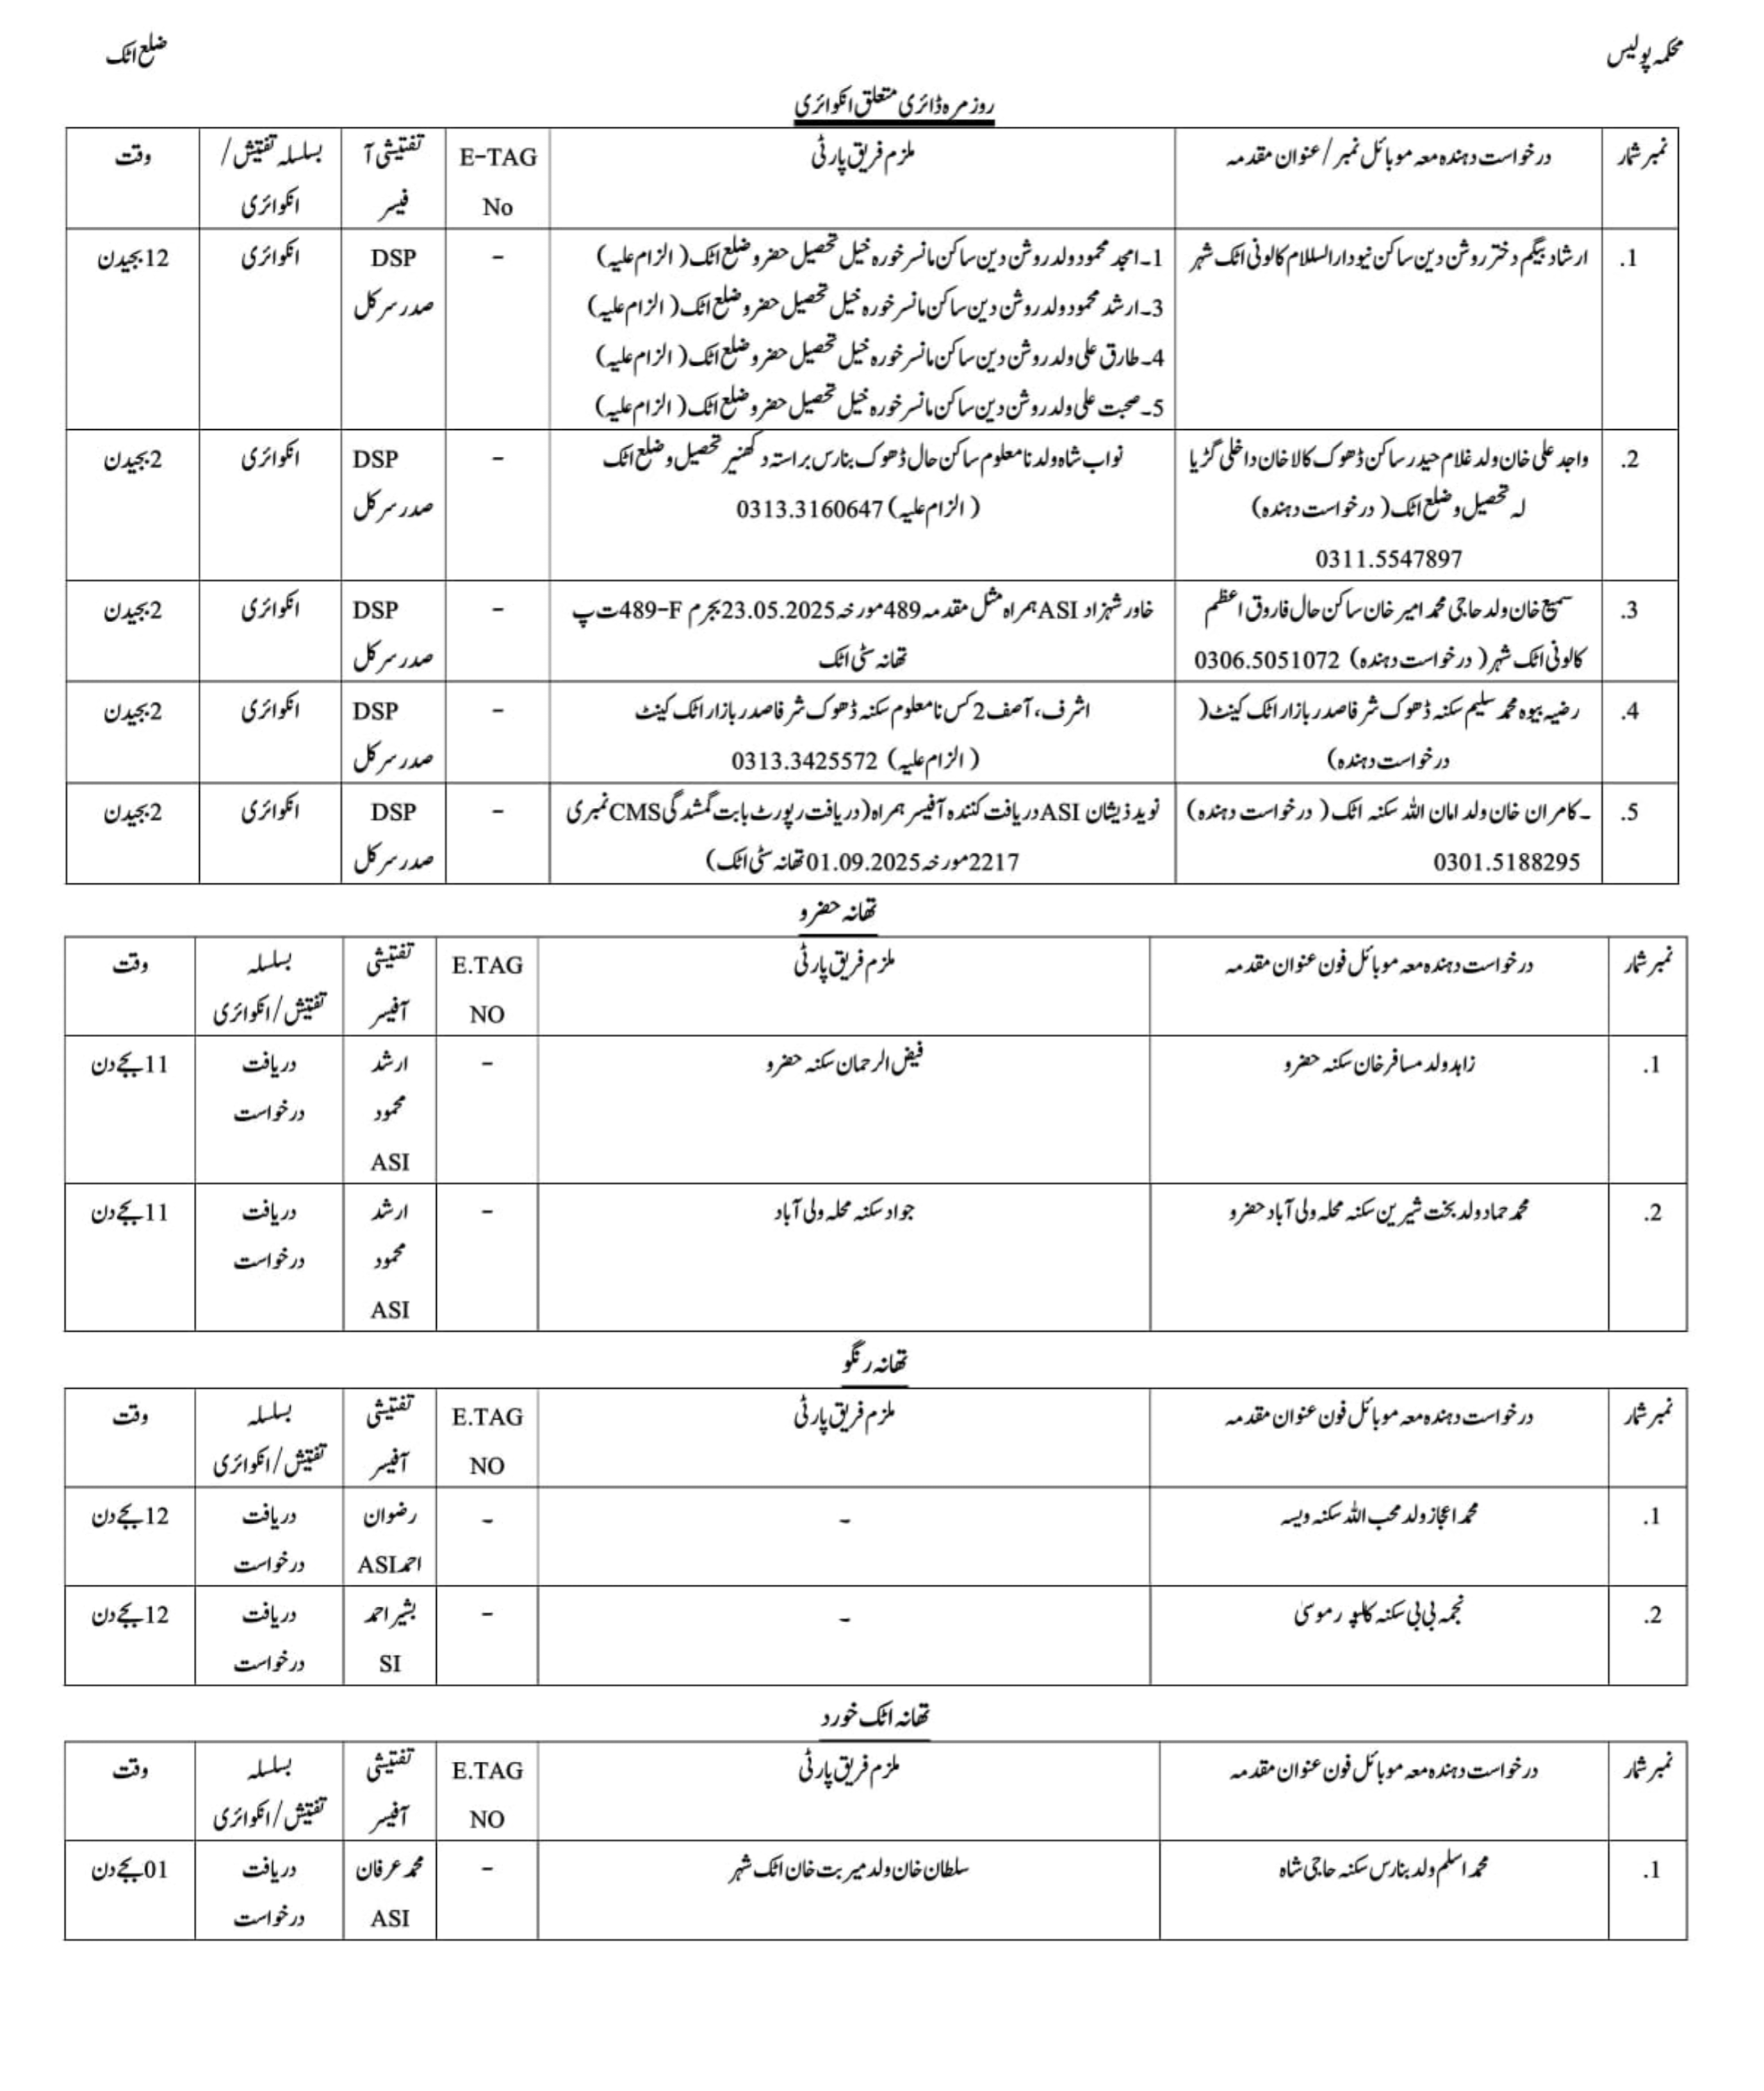 محکمہ پولیس
ضلع اٹک
روزمرہ ڈائری متعلق انکوائری
نمبر شمار
درخواست دہندہ معہ موبائل نمبر / عنوان مقدمہ
ملزم فریق پارٹی
E-TAG
No
تفتیشی آ
فیسر
بسلسلہ تفتیش /
انکوائری
وقت
1.
ارشاد بیگم دختر روشن دین ساکن نیو دارالسلام کالونی اٹک شہر
1۔امجد محمود ولد روشن دین ساکن مانسر خورہ خیل تحصیل حضرو ضلع اٹک (الزام علیہ)
3۔ارشد محمود ولد روشن دین ساکن مانسر خورہ خیل تحصیل حضرو ضلع اٹک (الزام علیہ)
4۔طارق علی ولد روشن دین ساکن مانسر خورہ خیل تحصیل حضرو ضلع اٹک (الزام علیہ)
5۔صحبت علی ولد روشن دین ساکن مانسر خورہ خیل تحصیل حضرو ضلع اٹک (الزام علیہ)
-
DSP
صدر سرکل
انکوائری
12بجیدن
2.
واجد علی خان ولد غلام حیدر ساکن ڈھوک کالا خان داخلی گڑیا
لہ تحصیل و ضلع اٹک (درخواست دہندہ)
0311.5547897
نواب شاہ ولد نامعلوم ساکن حال ڈھوک بنارس براستہ دکھنیر تحصیل و ضلع اٹک
(الزام علیہ) 0313.3160647
-
DSP
صدر سرکل
انکوائری
2بجیدن
3.
سمیع خان ولد حاجی محمد امیر خان ساکن حال فاروق اعظم
کالونی اٹک شہر (درخواست دہندہ) 0306.5051072
خاور شہزاد ASI ہمراہ مثل مقدمہ 489 مورخہ 23.05.2025 بجرم 489-F ت پ
تھانہ سٹی اٹک
-
DSP
صدر سرکل
انکوائری
2بجیدن
4.
رضیہ بیوہ محمد سلیم سکنہ ڈھوک شرفا صدر بازار اٹک کینٹ (
درخواست دہندہ)
اشرف، آصف 2 کس نامعلوم سکنہ ڈھوک شرفا صدر بازار اٹک کینٹ
(الزام علیہ) 0313.3425572
-
DSP
صدر سرکل
انکوائری
2بجیدن
5.
۔کامران خان ولد امان اللہ سکنہ اٹک (درخواست دہندہ)
0301.5188295
نوید ذیشان ASI دریافت کنندہ آفیسر ہمراہ (دریافت رپورٹ بابت گمشدگی CMS نمبری
2217 مورخہ 01.09.2025 تھانہ سٹی اٹک)
-
DSP
صدر سرکل
انکوائری
2بجیدن
تھانہ حضرو
نمبر شمار
درخواست دہندہ معہ موبائل فون عنوان مقدمہ
ملزم فریق پارٹی
E.TAG
NO
تفتیشی
آفیسر
بسلسلہ
تفتیش/انکوائری
وقت
1.
زاہد ولد مسافر خان سکنہ حضرو
فیض الرحمان سکنہ حضرو
-
ارشد
محمود
ASI
دریافت
درخواست
11بجے دن
2.
محمد حماد ولد بخت شیرین سکنہ محلہ ولی آباد حضرو
جواد سکنہ محلہ ولی آباد
-
ارشد
محمود
ASI
دریافت
درخواست
11بجے دن
تھانہ رنگو
نمبر شمار
درخواست دہندہ معہ موبائل فون عنوان مقدمہ
ملزم فریق پارٹی
E.TAG
NO
تفتیشی
آفیسر
بسلسلہ
تفتیش/انکوائری
وقت
1.
محمد اعجاز ولد محب اللہ سکنہ ویسہ
-
-
رضوان
احمد ASI
دریافت
درخواست
12بجے دن
2.
نجمہ بی بی سکنہ کلور موسیٰ
-
-
بشیر احمد
SI
دریافت
درخواست
12بجے دن
تھانہ اٹک خورد
نمبر شمار
درخواست دہندہ معہ موبائل فون عنوان مقدمہ
ملزم فریق پارٹی
E.TAG
NO
تفتیشی
آفیسر
بسلسلہ
تفتیش/انکوائری
وقت
1.
محمد اسلم ولد بنارس سکنہ حاجی شاہ
سلطان خان ولد میربت خان اٹک شہر
-
محمد عرفان
ASI
دریافت
درخواست
01بجے دن